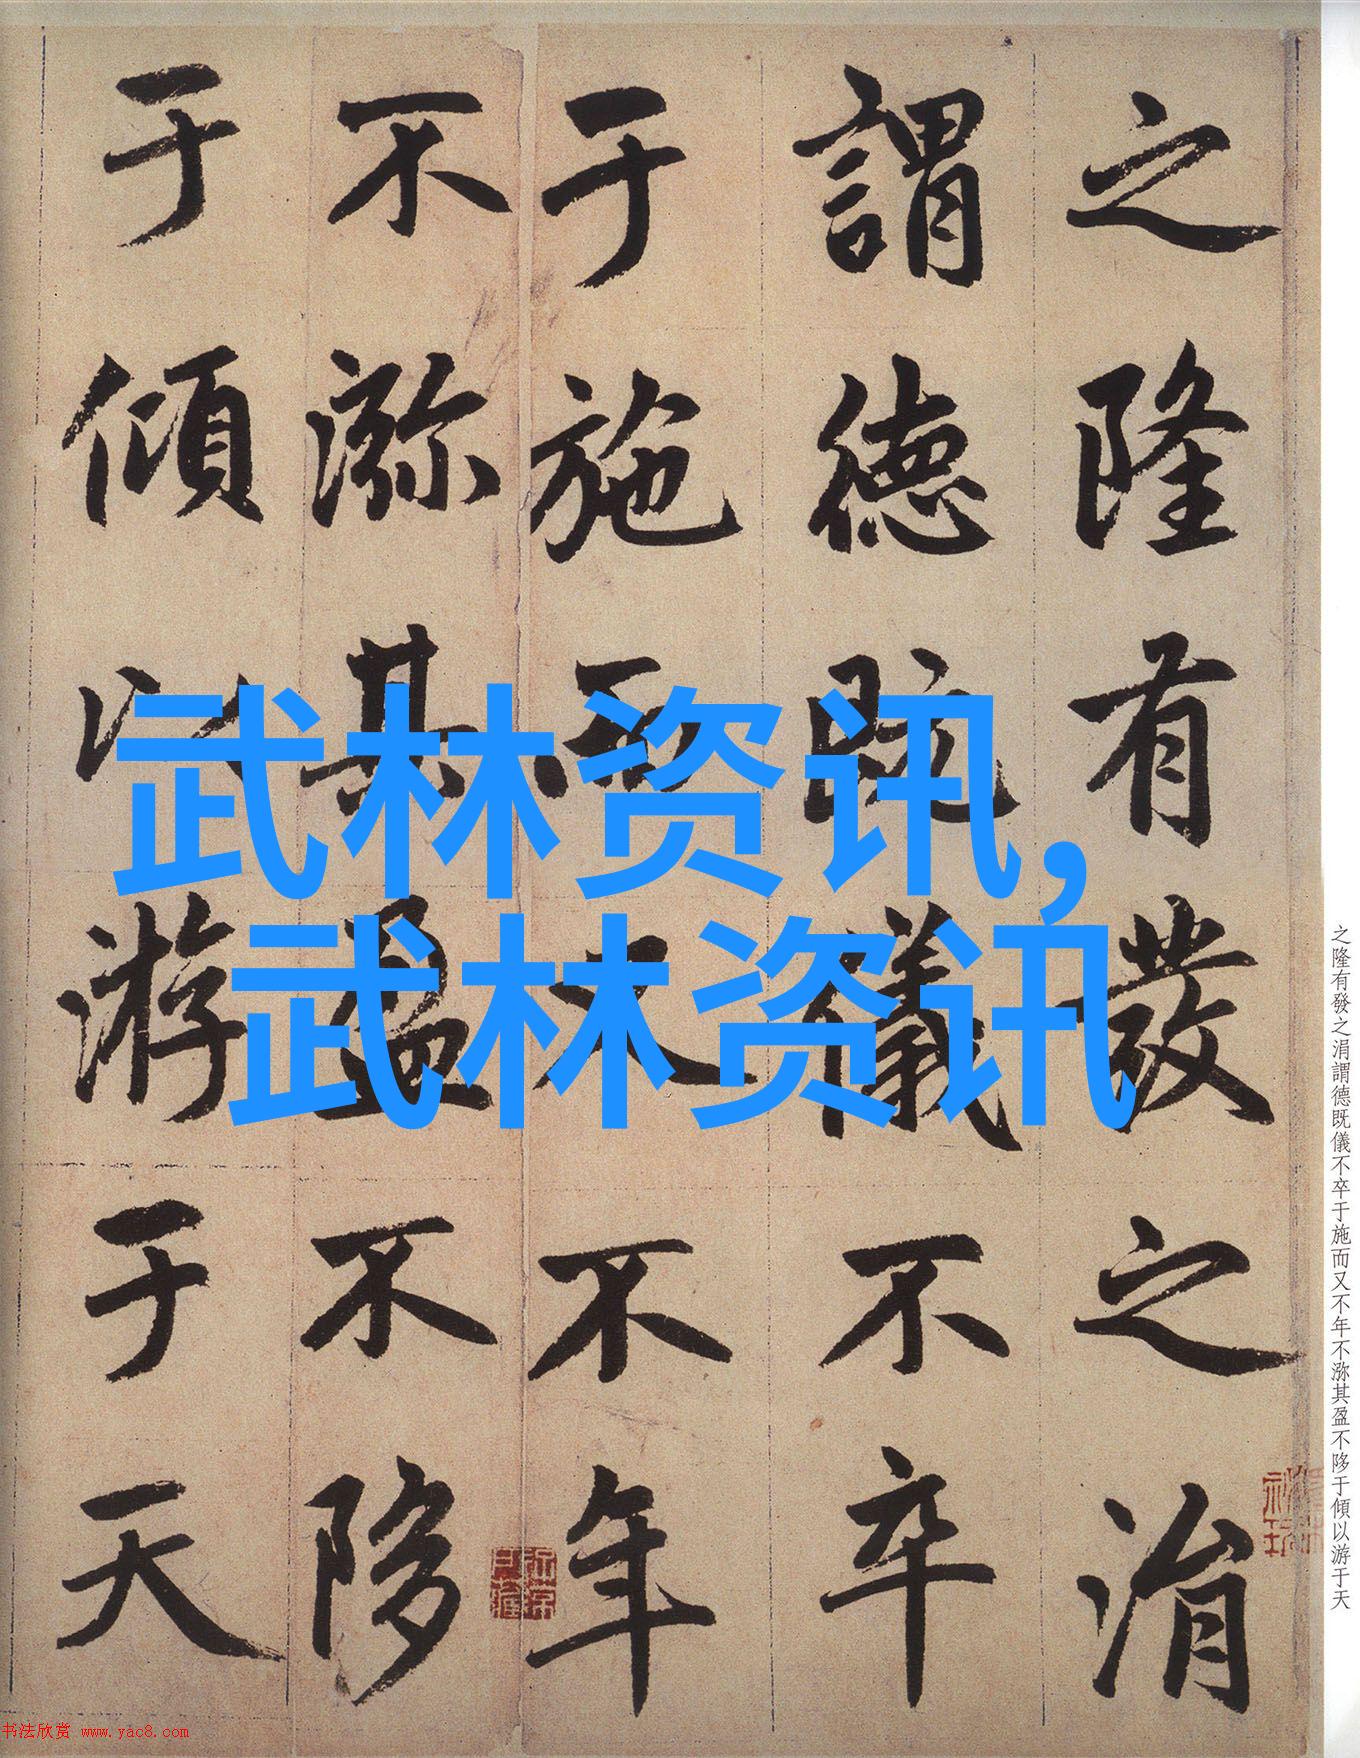 之隆有發之涓
謂德既儀不卒
于施而又不年
不溵其盈不陊
于傾以游于天
武林资讯,
武林资讯
之隆有發之涓謂德既儀不卒于施而又不年不溵其盈不陊于傾以游于天
书法欣赏 www.yac8.com